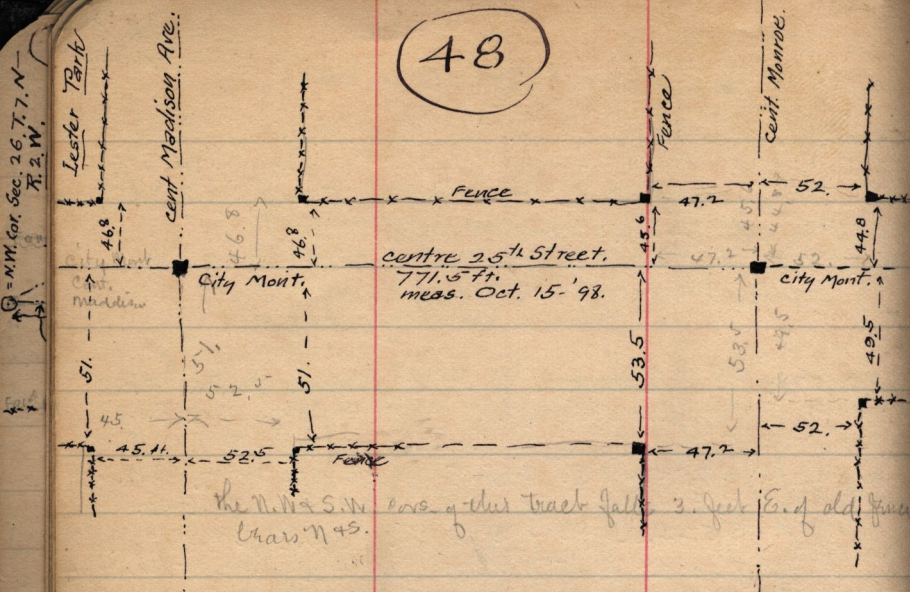 48
= N.W. Cor. Sec. 26. T. 7. N
R. 2 W.
Lester Park
cent Madison Ave.
Fence
cent. Monroe.
Fence
47.2
52.
46.8
46.8
46.8
45.6
45.
44.8
44.8
City Mont.
Cent.
Maddison
City Mont.
centre 25th Street.
771.5 ft.
meas. Oct. 15 - '98.
47.2
52.
City Mont.
51.
51.
51.
53.5
53.5
49.5
49.5
52.5
45.
52.
45 ft.
52.5
Fence
47.2
the N.W & S.W cors of this tract falls 3. feet E. of old fence
bears N & S.